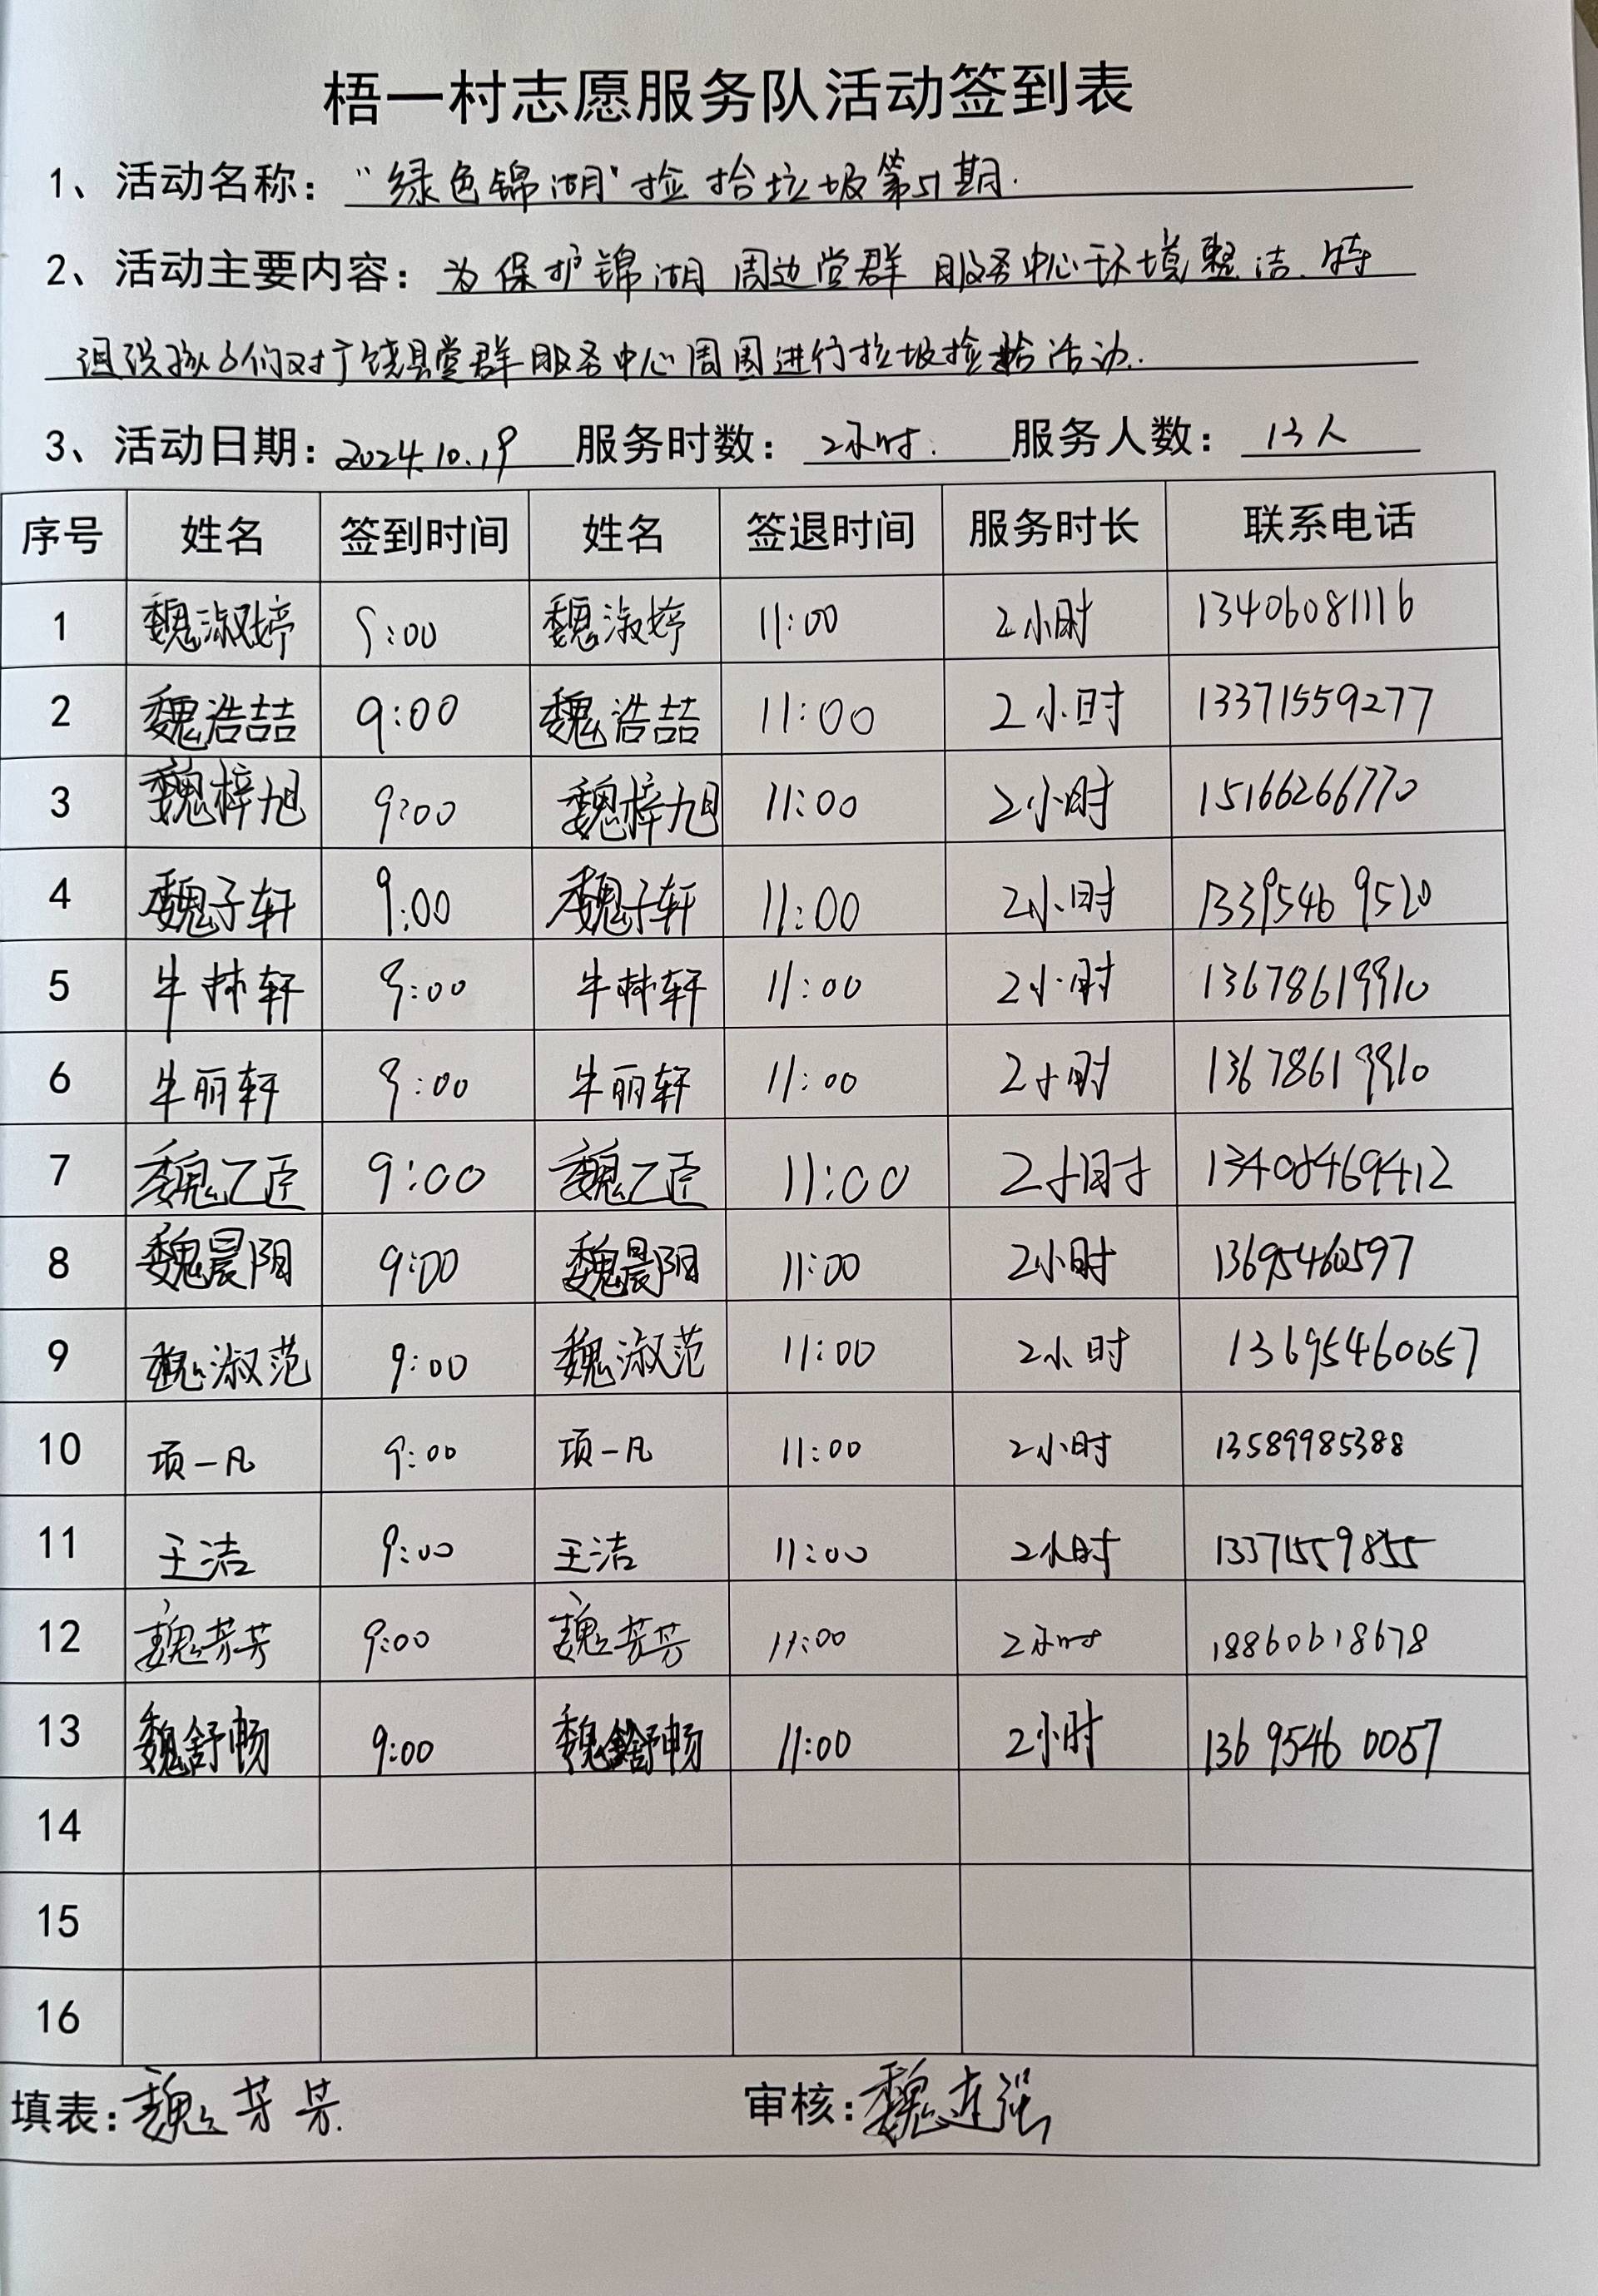 梧一村志愿服务队活动签到表
1、活动名称："绿色锦湖"捡拾垃圾第51期.
2、活动主要内容：为保护锦湖周边党群服务中心环境整洁.特
组织孩子们对广饶县党群服务中心周围进行垃圾捡拾活动.
3、活动日期：2024.10.19 服务时数：2小时. 服务人数：13人
序号 姓名 签到时间 姓名 签退时间 服务时长 联系电话
1 魏淑婷 9:00 魏淑婷 11:00 2小时 13406081116
2 魏浩喆 9:00 魏浩喆 11:00 2小时 13371559277
3 魏梓旭 9:00 魏梓旭 11:00 2小时 15166266770
4 魏子轩 9:00 魏子轩 11:00 2小时 13395469520
5 牛林轩 9:00 牛林轩 11:00 2小时 13678619910
6 牛丽轩 9:00 牛丽轩 11:00 2小时 13678619910
7 魏乙臣 9:00 魏乙臣 11:00 2小时 13408469412
8 魏晨阳 9:00 魏晨阳 11:00 2小时 13695460597
9 魏淑范 9:00 魏淑范 11:00 2小时 13695460057
10 项一凡 9:00 项一凡 11:00 2小时 13589985388
11 王洁 9:00 王洁 11:00 2小时 13371559855
12 魏芳芳 9:00 魏芳芳 11:00 2小时 18860618678
13 魏舒畅 9:00 魏舒畅 11:00 2小时 13695460057
14
15
16
填表：魏芳芳. 审核：魏连强